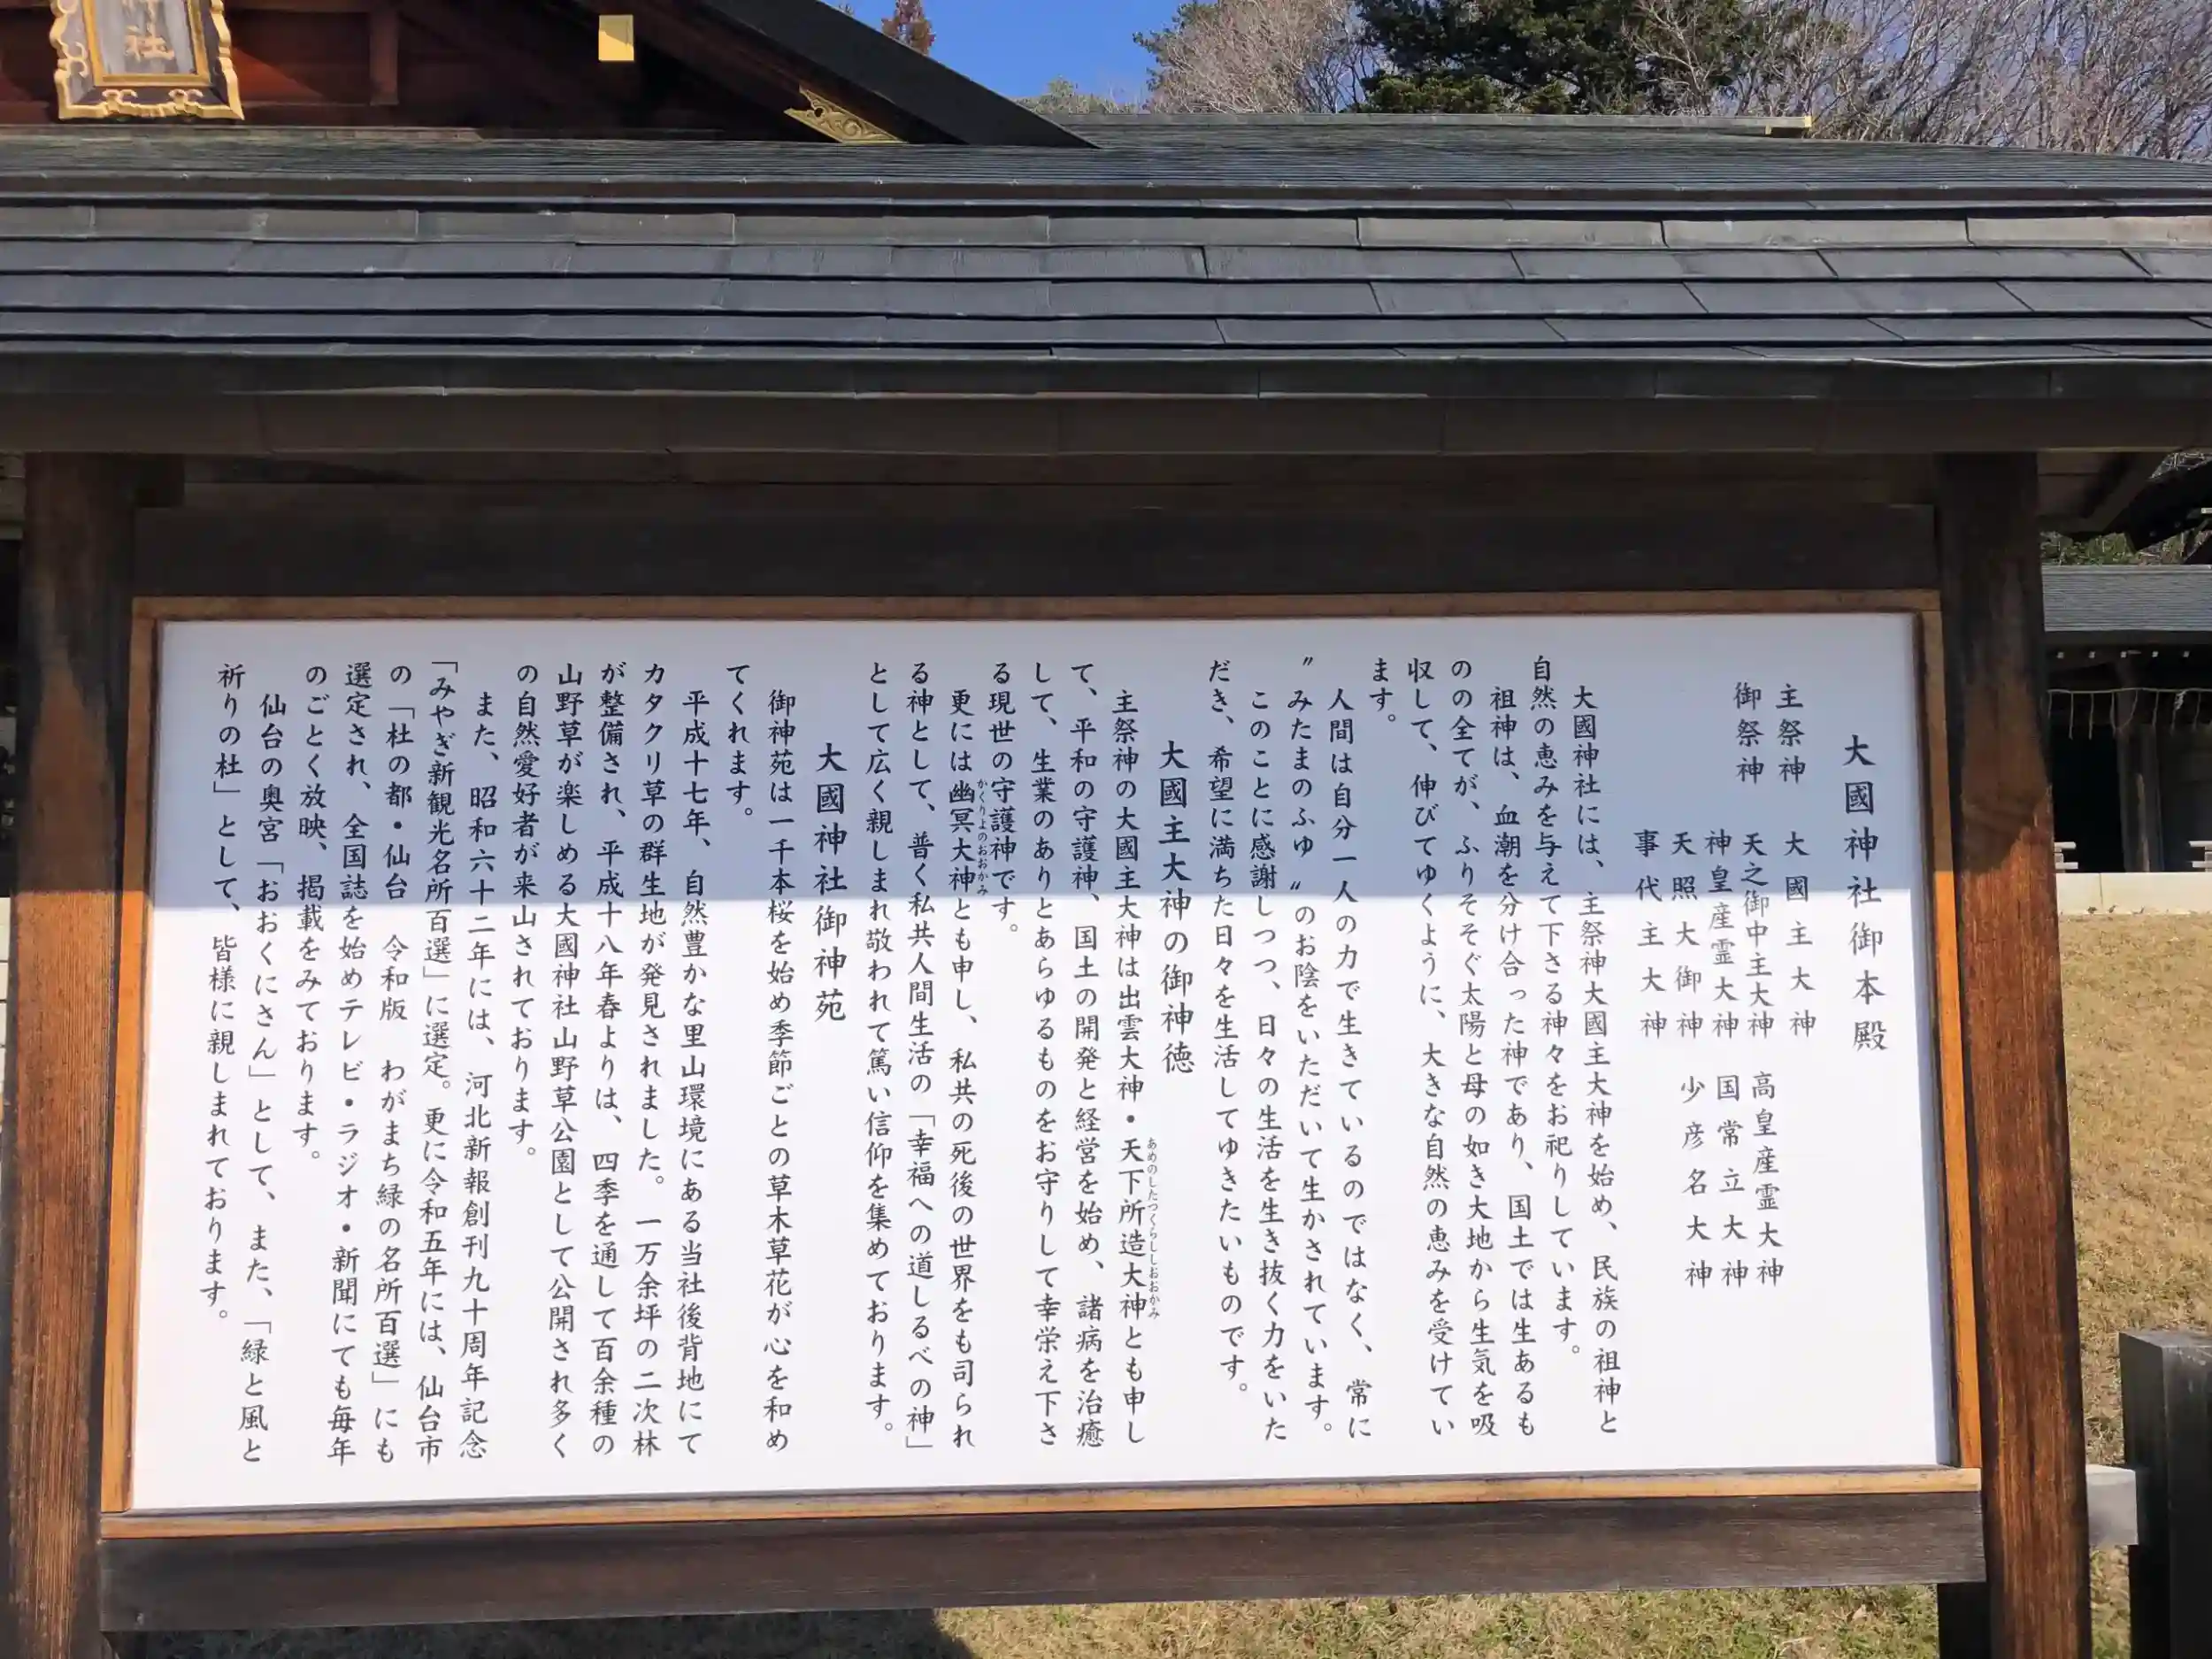 神社
大國神社御本殿
主祭神　大國主大神
御祭神　天之御中主大神　高皇産霊大神
神皇産霊大神　国常立大神
天照大御神　少彦名大神
事代主大神
大國神社には、主祭神大國主大神を始め、民族の祖神と
自然の恵みを与えて下さる神々をお祀りしています。
祖神は、血潮を分け合った神であり、国土では生あるも
のの全てが、ふりそそぐ太陽と母の如き大地から生気を吸
収して、伸びてゆくように、大きな自然の恵みを受けてい
ます。
人間は自分一人の力で生きているのではなく、常に
〝みたまのふゆ〟のお陰をいただいて生かされています。
このことに感謝しつつ、日々の生活を生き抜く力をいた
だき、希望に満ちた日々を生活してゆきたいものです。
大國主大神の御神徳
主祭神の大國主大神は出雲大神・天下所造大神とも申し
あめのしたつくらししおおかみ
て、平和の守護神、国土の開発と経営を始め、諸病を治癒
して、生業のありとあらゆるものをお守りして幸栄え下さ
る現世の守護神です。
更には幽冥大神とも申し、私共の死後の世界をも司られ
かくりよのおおかみ
る神として、普く私共人間生活の「幸福への道しるべの神」
として広く親しまれ敬われて篤い信仰を集めております。
大國神社御神苑
御神苑は一千本桜を始め季節ごとの草木草花が心を和め
てくれます。
平成十七年、自然豊かな里山環境にある当社後背地にて
カタクリ草の群生地が発見されました。一万余坪の二次林
が整備され、平成十八年春よりは、四季を通して百余種の
山野草が楽しめる大國神社山野草公園として公開され多く
の自然愛好者が来山されております。
また、昭和六十二年には、河北新報創刊九十周年記念
「みやぎ新観光名所百選」に選定。更に令和五年には、仙台市
の「杜の都・仙台　令和版　わがまち緑の名所百選」にも
選定され、全国誌を始めテレビ・ラジオ・新聞にても毎年
のごとく放映、掲載をみております。
仙台の奥宮「おおくにさん」として、また、「緑と風と
祈りの杜」として、皆様に親しまれております。